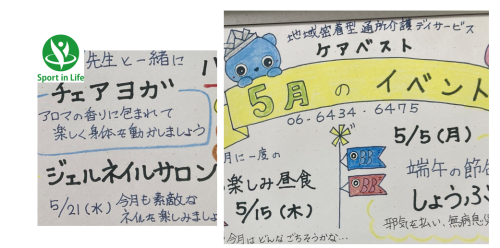 Sport in Life
先生と一緒に
チェアヨガ
アロマの香りに包まれて
楽しく身体を動かしましょう
ジェルネイルサロン
5/21(水) 今月も素敵な
ネイルを楽しみましょ
地域密着型通所介護デイサービス
ケアベスト
5月のイベント
06-6434-6475
5/5(月)
端午の節
しょうぶ
邪気を払い、無病息
月に一度の
楽しみ昼食
5/15(木)
今月はどんなごちそうかな…